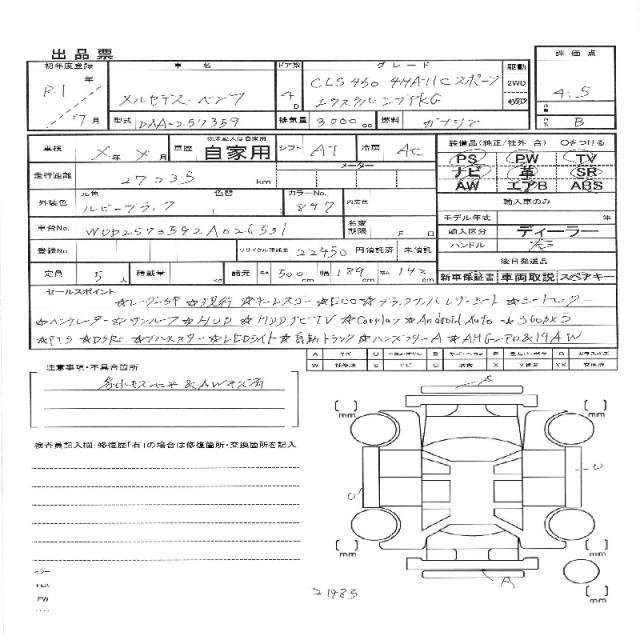 出品票
初年度登録 車名 ドア数 グレード 駆動 評価点
R1年 7月 メルセデス・ベンツ 4D CLS450 4MATICスポーツ 2WD 4.5
エクスクルーシブPKG 4WD
型式 DAA-257359 排気量 3000cc 燃料 ガソリン B
車検 X年X月 車歴 自家用 シフト AT 冷房 AC
装備品(純正/社外 含) ○をつける
PS PW TV
ナビ 革 SR
AW エアB ABS
走行距離 メーター
27033 km
外装色 元色 色替 カラーNo. 内装色
ルビーブラック 897
輸入車のみ
モデル年式 年
輸入区分 ディーラー
ハンドル 左
車台No. WDD2573592A026551 名変期限 月 日
登録No. リサイクル預託金 22450 円預託済 未預託
後日発送品
新車保証書 車両取説 スペアキー
定員 5人 積載量 kg 諸元 長さ 500cm 幅 189cm 高さ 142cm
セールスポイント
★レーダーSP ★現行 ★キーレスゴー ★ECO ★ブラックナッパレザーシート ★シートヒーター
★ベンチレーター ★サンルーフ ★HUD ★HDDナビTV ★Carplay ★Android Auto ★360カメラ
★PTS ★DSRC ★ブルメスター ★LEDライト ★自動トランク ★ハンズフリーA ★AMGエアロ&19AW
注意事項・不具合箇所
各小キズヘコ&AWキズ済
検査員記入欄:修復歴「有」の場合は修復箇所・交換箇所を記入
[ ] mm
[ ] mm
A
W
U
[ ] mm
[ ] mm
A
[ ] mm
21985